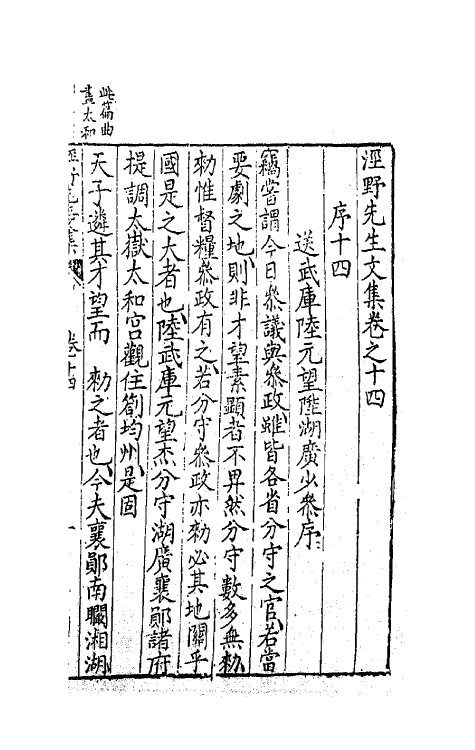 涇野先生文集卷之十四
序十四
送武庫陸元望陞湖廣少叅序
竊嘗謂今日叅議與叅政雖皆各省分守之官若當
要劇之地則非才望素顯者不畀然分守數多無勑
勑惟督糧叅政有之若分守叅政亦勑必其地關乎
國是之大者也陸武庫元望杰分守湖廣襄鄖諸府
提調太嶽太和宮觀住劄均州是固
天子遴其才望而 勑之者也今夫襄鄖南瞰湘湖
卷十四
此篇曲
盡太和